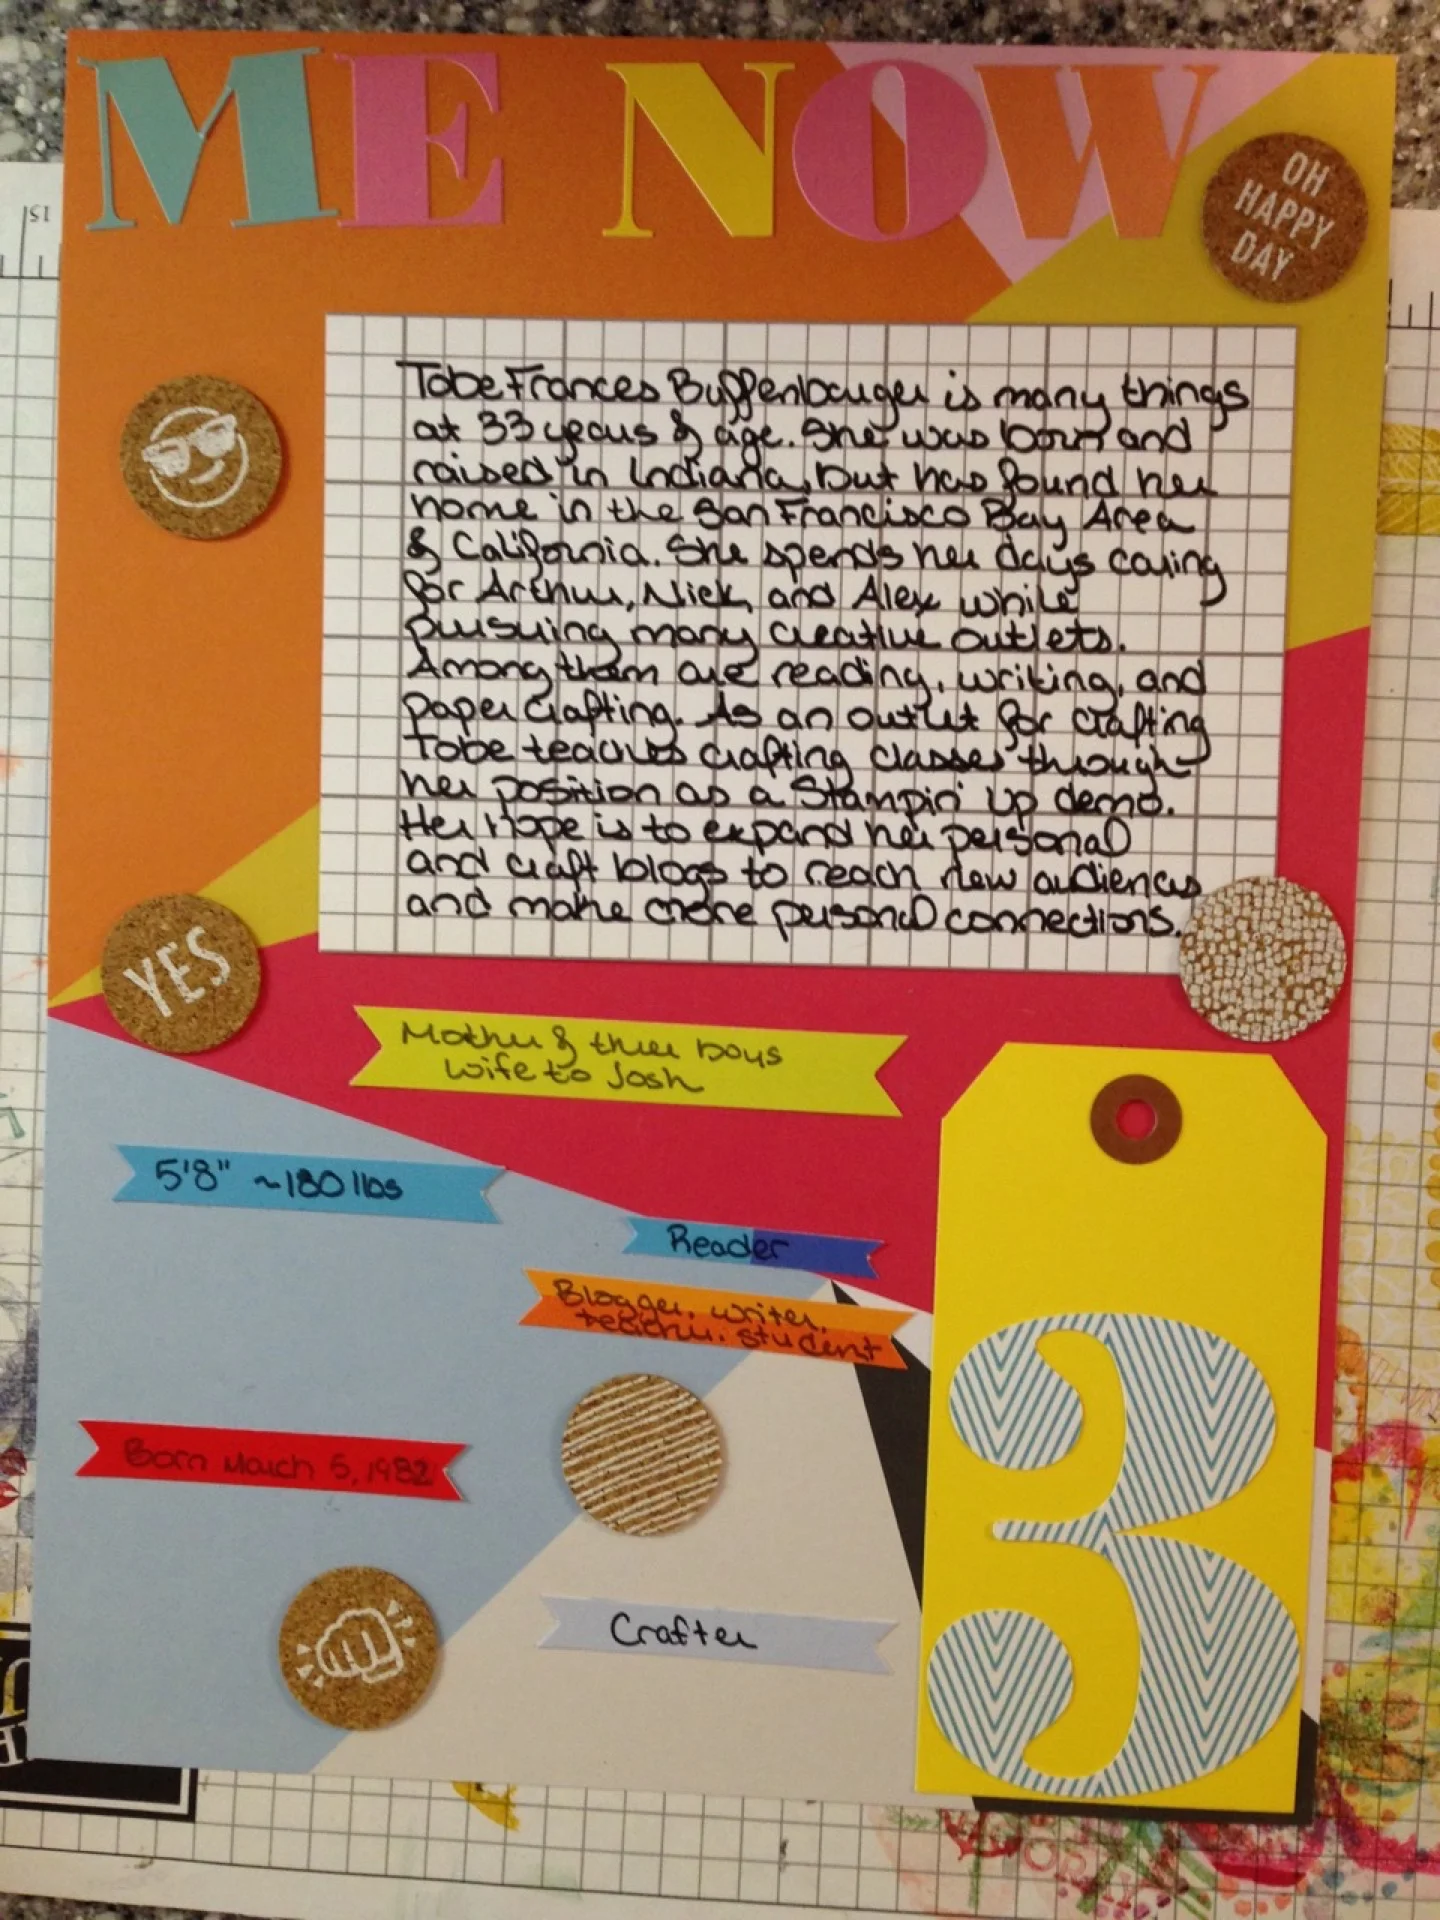 ME NOW
OH
HAPPY
DAY
Tobe Frances Buffenbarger is many things
at 33 years of age. She was born and
raised in Indiana, but has found her
home in the San Francisco Bay Area
of California. She spends her days caring
for Arthur, Nick, and Alex while
pursuing many creative outlets.
Among them are reading, writing, and
paper crafting. As an outlet for crafting
Tobe teaches crafting classes through
her position as a Stampin' Up demo.
Her hope is to expand her personal
and craft blogs to reach new audiences
and make more personal connections.
YES
Mother of three boys
wife to Josh
5'8" ~180 lbs
Reader
Blogger, writer,
teacher, student
Born March 5, 1982
Crafter
3
15